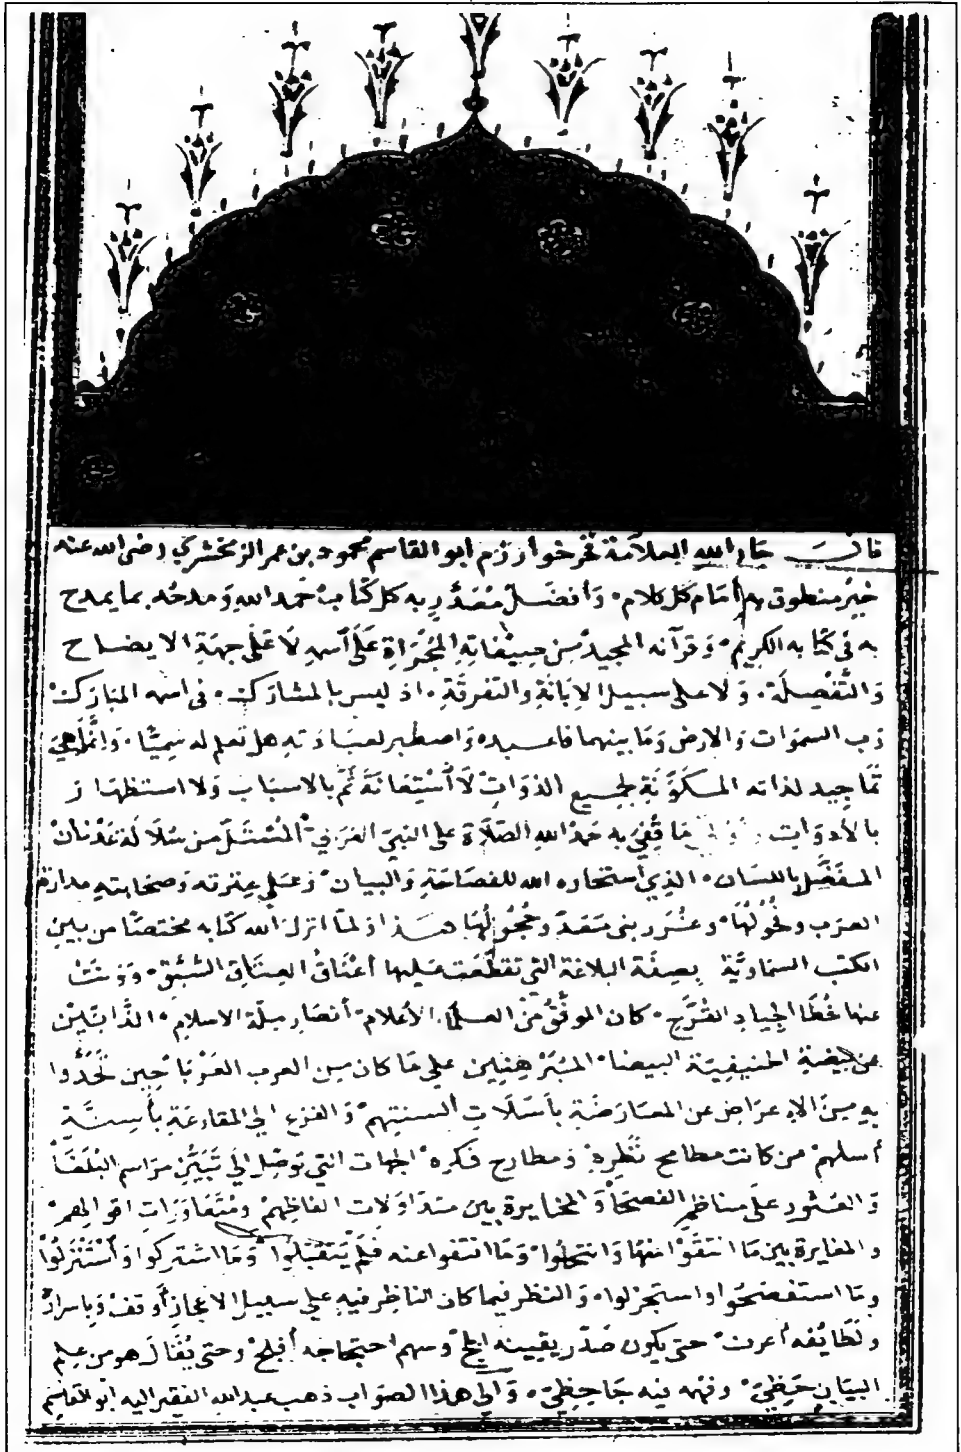 قال جار الله العلامة فخر خوارزم ابو القاسم محمود بن عمر الزمخشري رضى الله عنه
خير منطوق به أمام كل كلام وأفضل مُصَدَّرٍ به كل كتاب حمد الله ومدحه بما يمدح
به فى كتابه الكريم وقرآنه المجيد من صفاته المُجْراة على اسمه لا على جهة الايضاح
والتفصلة ولا على سبيل الابانة والتفرقة اذ ليس بالمشارك فى اسمه المبارك
رب السموات والارض وما بينهما فاعبده واصطبر لعبادته هل تعلم له سميا وانما هي
تماجيد لذاته المكونة لجميع الذوات لا استعانة ثم بالاسباب ولا استظهار
بالأدوات ما قُفِّيَ به حمد الله الصلاة على النبي العربي المستل من سلالة عدنان
المفضل باللسان الذي استخاره الله للفصاحة والبيان وعلى عترته وصحابته مدارة
العرب وفحولها وغرر بنى معد وحجولها هذا اذ لما انزل الله كتابه مختصا من بين
الكتب السماوية بصفة البلاغة التى تقطعت عليها أعناق العتاق السبق وونت
عنها خطا الجياد القرح كان الموفق من العلماء الأعلام أنصار ملة الاسلام الذابين
عن بيضة الحنيفية البيضا المبرهنين على ما كان من العرب العربا حين تُحُدُّوا
به من الاعراض عن المعارضة بأسلات ألسنتهم والفزع الى المقارعة بأسنة
أسلهم من كانت مطامح نظره ومطارح فكره الجهات التي توصل الى تبين مراسم البلغا
والعثور على مناظم الفصحا والمخايرة بين متداولات الفاظهم ومتعاورات اقوالهم
والمغايرة بين ما انتقوا منها وانتخلوا وما انتفوا عنه فلم يتقبلوا وما استركوا واستنزلوا
وما استفصحوا واستجزلوا والنظر فيما كان الناظر فيه على سبيل الاعجاز أوقف وباسراره
ولطائفه أعرف حتى يكون صدر يقينه اثلج وسهم احتجاجه أفلج وحتى يقال هو من علم
البيان حظي وفهمه فيه جاحظي والى هذا الصواب ذهب عبد الله الفقير اليه ابو القاسم